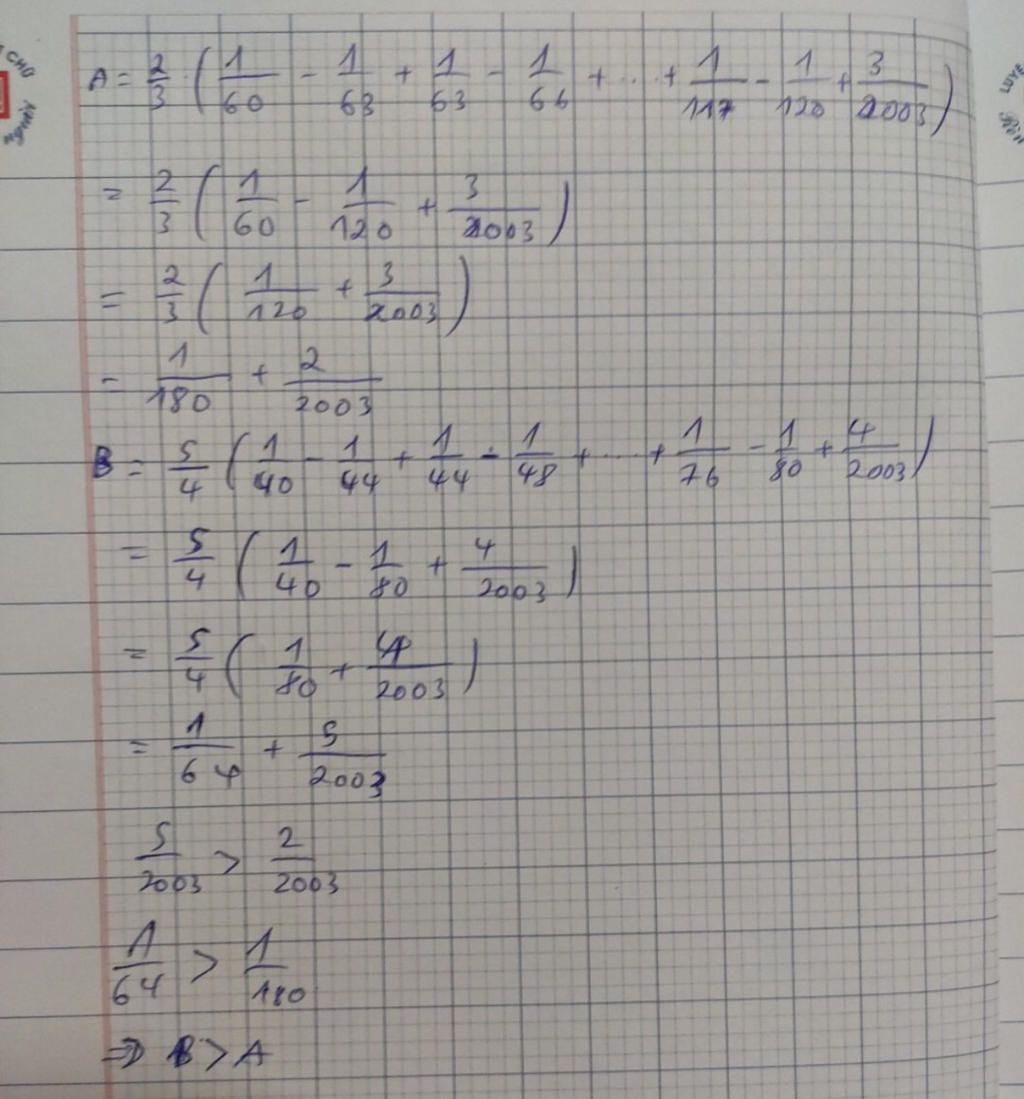 A = 2/3 . ( 1/60 - 1/63 + 1/63 - 1/66 + ... + 1/117 - 1/120 + 3/2003 )
= 2/3 ( 1/60 - 1/120 + 3/2003 )
= 2/3 ( 1/120 + 3/2003 )
= 1/180 + 2/2003
B = 5/4 ( 1/40 - 1/44 + 1/44 - 1/48 + ... + 1/76 - 1/80 + 4/2003 )
= 5/4 ( 1/40 - 1/80 + 4/2003 )
= 5/4 ( 1/80 + 4/2003 )
= 1/64 + 5/2003
5/2003 > 2/2003
1/64 > 1/180
=> B > A
CHỮ
LUYỆ